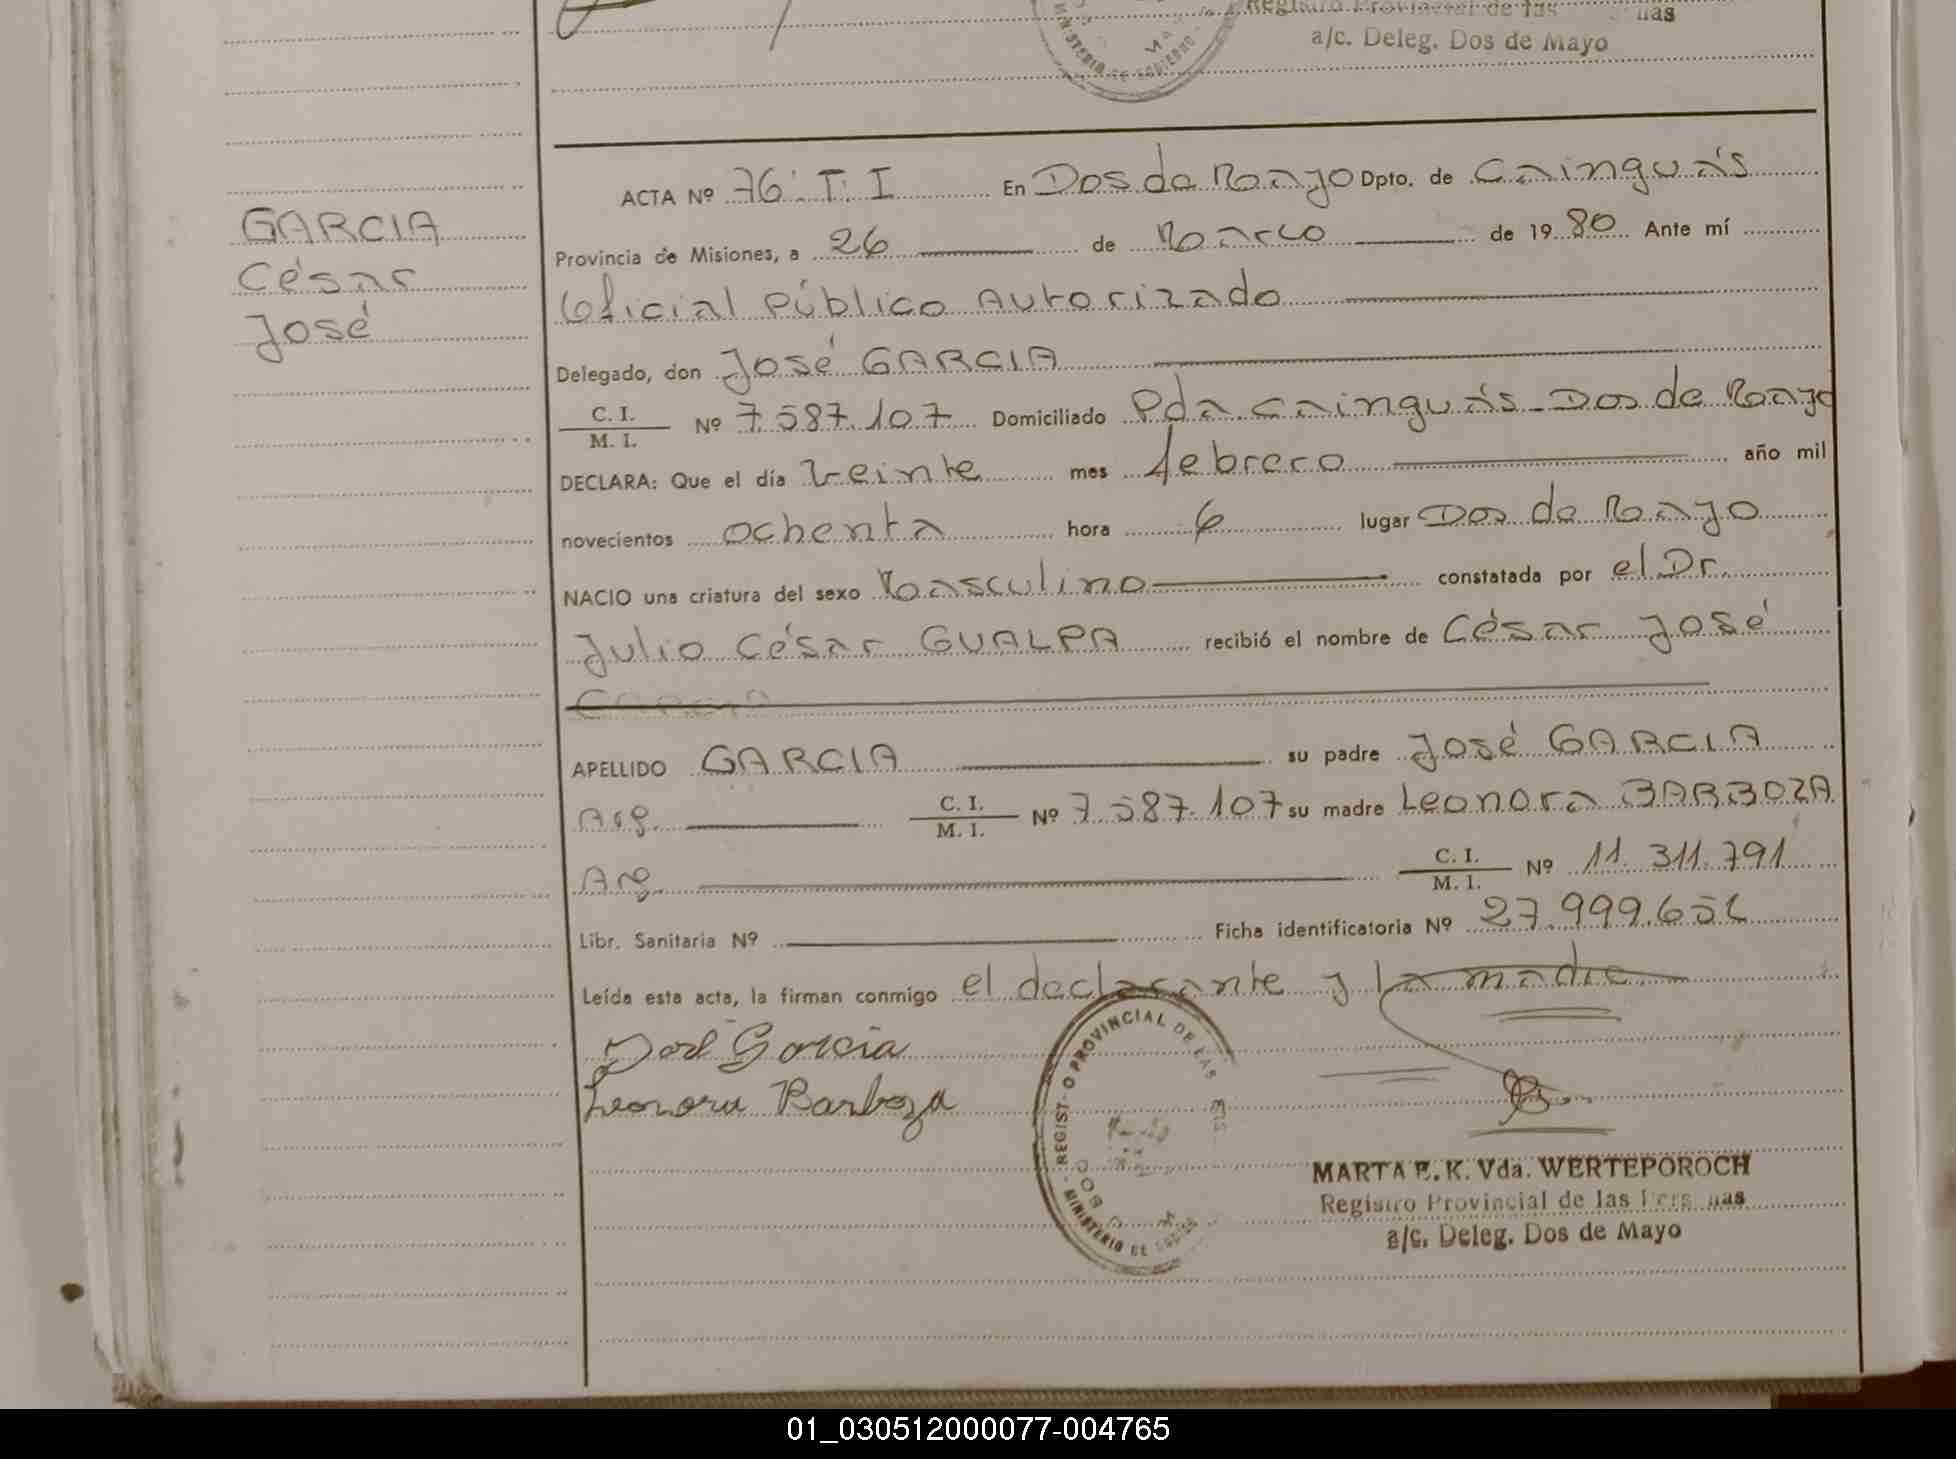 Registro Provincial de las nas
a/c. Deleg. Dos de Mayo
MINISTERIO DE GOBIERNO
GARCIA
César
José
ACTA Nº 76. T. I En Dos de Mayo Dpto. de Cainguás
Provincia de Misiones, a 26 de Marzo de 1980 Ante mí
Oficial Público Autorizado
Delegado, don José GARCIA
C. I.
M. I. Nº 7.587.107 Domiciliado Pda. Cainguás - Dos de Mayo
DECLARA: Que el día veinte mes febrero año mil
novecientos ochenta hora 6 lugar Dos de Mayo
NACIO una criatura del sexo Masculino constatada por el Dr.
Julio César GUALPA recibió el nombre de César José
APELLIDO GARCIA su padre José GARCIA
Arg. C. I.
M. I. Nº 7.587.107 su madre Leonora BARBOZA
Arg. C. I.
M. I. Nº 11.311.791
Libr. Sanitaria Nº Ficha identificatoria Nº 27.999.656
Leída esta acta, la firman conmigo el declarante y la madre
José Garcia
Leonora Barboza
REGIST O PROVINCIAL DE LAS
MINISTERIO DE
MARTA E. K. Vda. WERTEPOROCH
Registro Provincial de las Pers nas
a/c. Deleg. Dos de Mayo
01_030512000077-004765